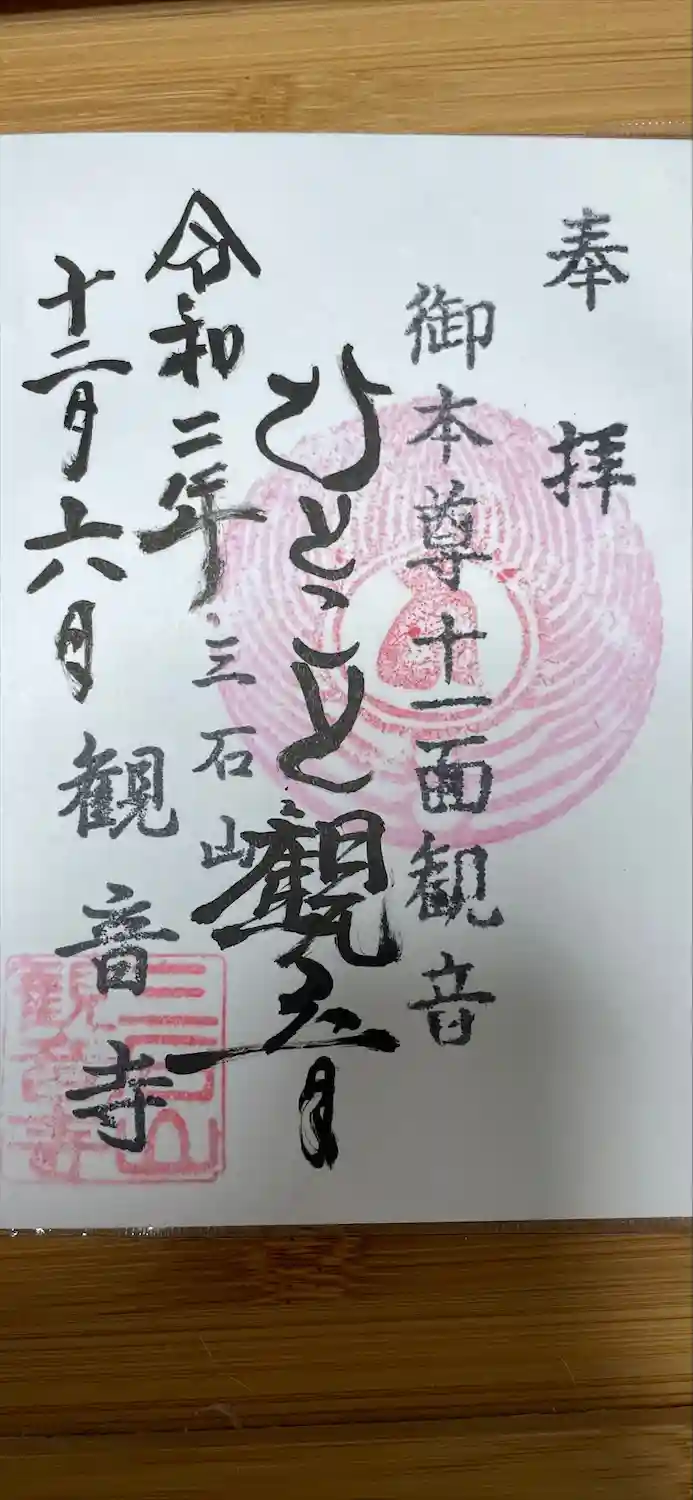 奉拝
御本尊十一面観音
ひとこと観音
三石山
令和二年
十二月六日
観音寺
三石山
観音寺